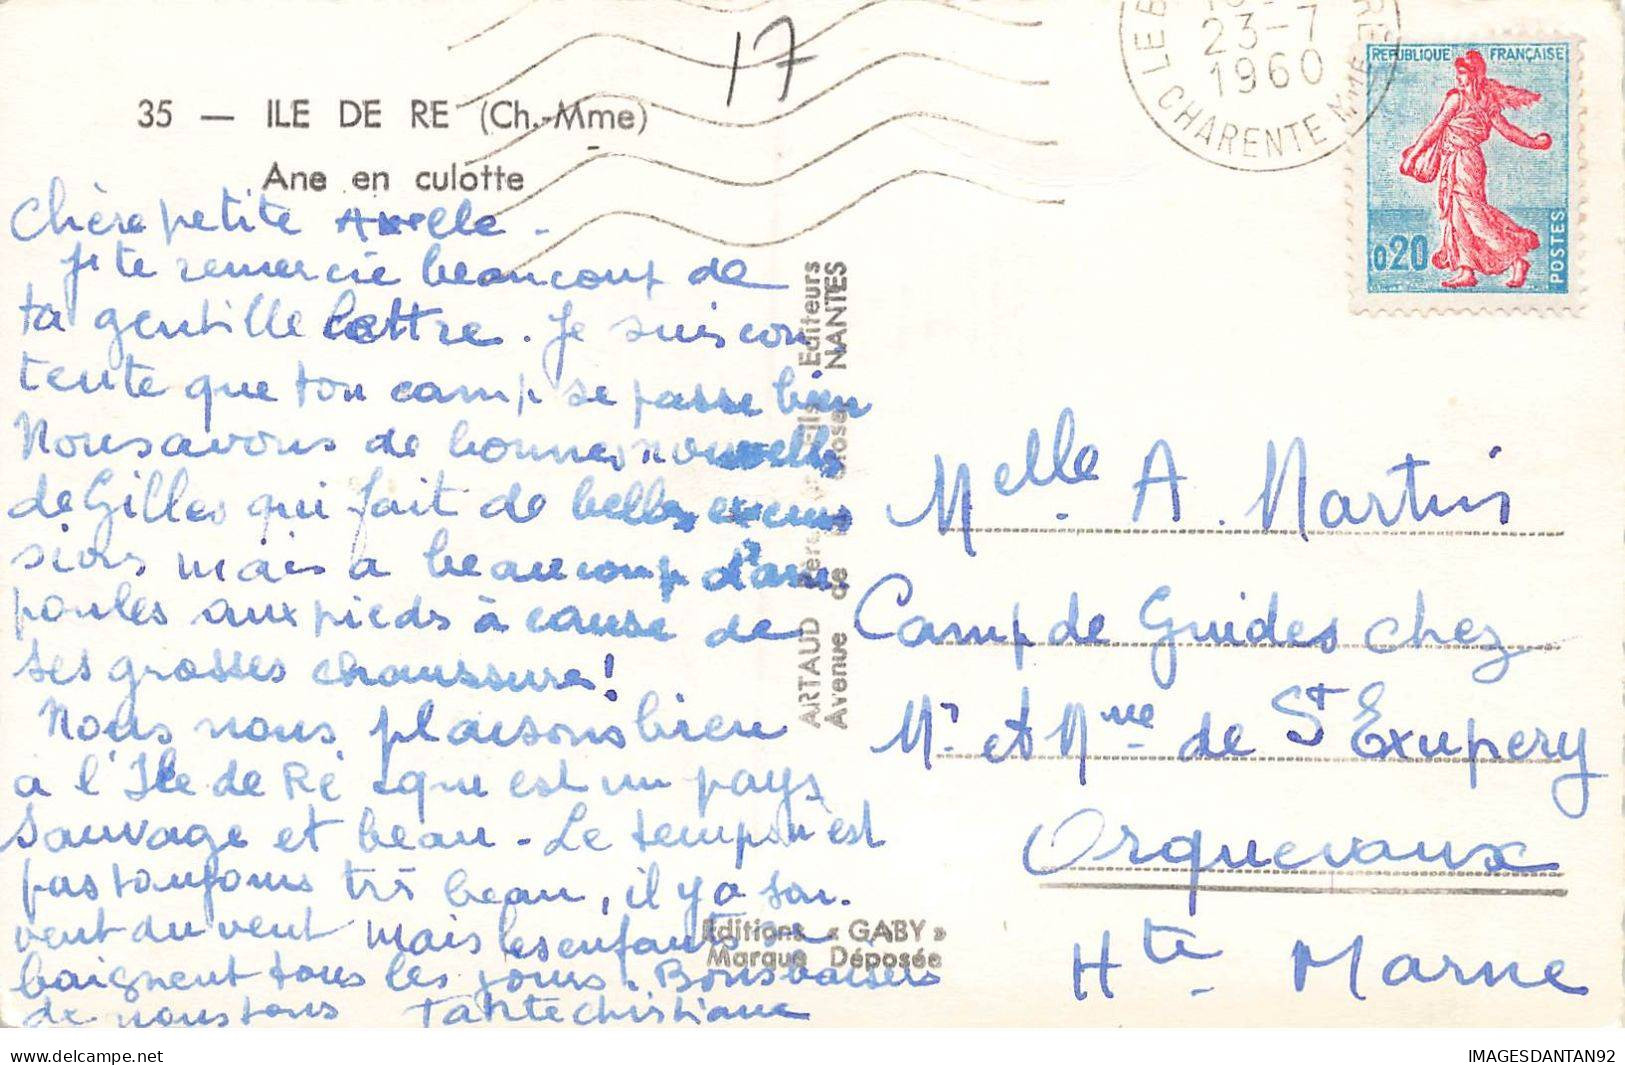 17
LE B
RE
23-7
1960
CHARENTE Mme
REPUBLIQUE FRANÇAISE
0,20
POSTES
35 — ILE DE RE (Ch.-Mme)
Ane en culotte
Chère petite
je te remercie beaucoup de
ta gentille lettre. Je suis con
tente que ton camp se passe bien
Nous avons de bonnes nouvelles
de Gilles qui fait de belles excur
sions mais a beaucoup d'am
poules aux pieds à cause de
ses grosses chaussures!
Nous nous plaisons bien
à l'Ile de Ré que est un pays
sauvage et beau - Le temps n'est
pas toujours très beau, il y a sou.
vent du vent mais les enfants se
baignent tous les jours. Bons baisers
de nous tous Tante Christiane
ARTAUD Père et Fils Editeurs
Avenue de NANTES
Editions « GABY »
Marque Déposée
Melle A. Martin
Camp de Guides chez
Mr et Mme de St Exupery
Orquevaux
Hte Marne
IMAGESDANTAN92